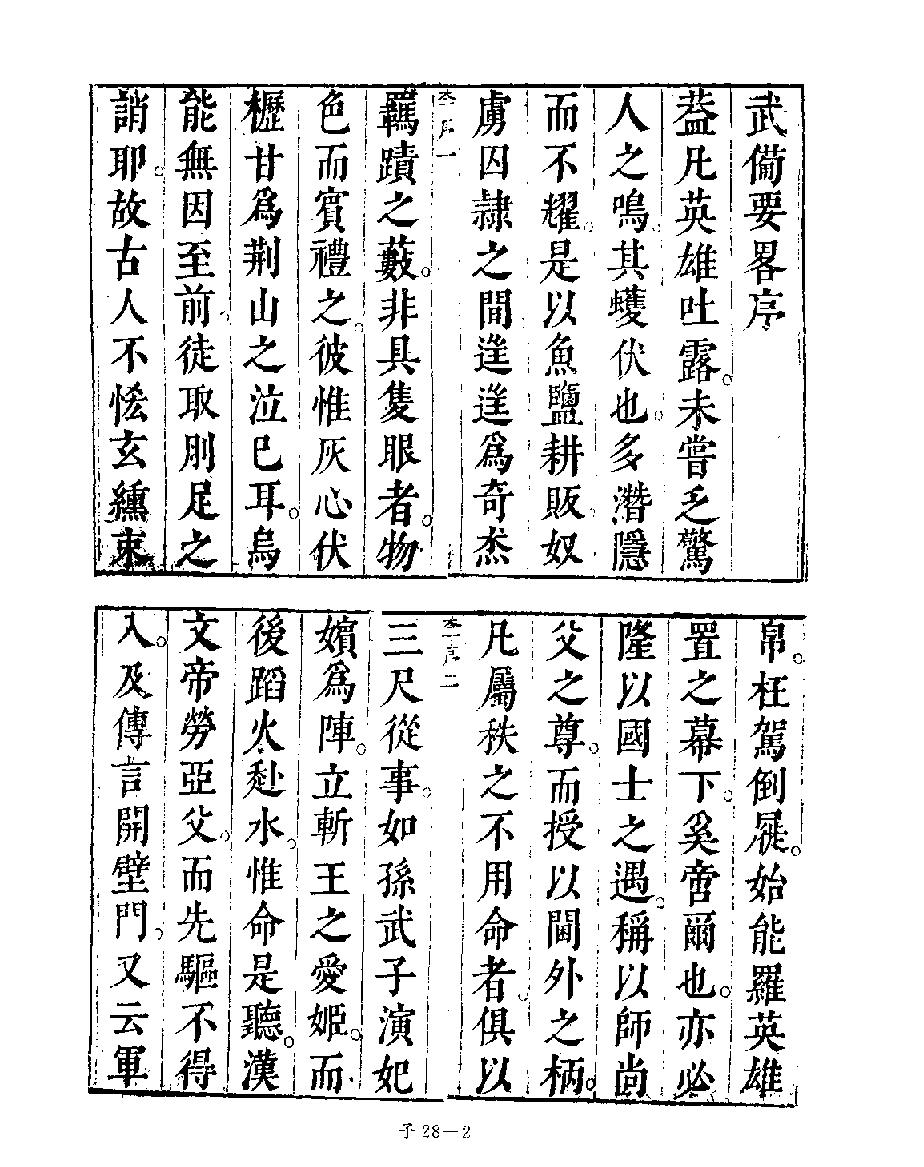 武俻要畧序
葢凡英雄吐露。未嘗乏驚
人之鳴。其蠖伏也。多潛隱
而不耀。是以魚鹽耕販。奴
虜囚隷之間爲奇杰
本序一
羈蹟之藪。非具隻眼者。物
色而賓禮之。彼惟灰心伏
櫪甘爲荆山之泣已耳。烏
能無因至前。徒取刖足之
誚耶。故古人不恡玄纁束
帛。枉駕倒屣。始能羅英雄
置之幕下。奚啻爾也。亦必
隆以國士之遇。稱以師尚
父之尊。而授以閫外之柄。
凡屬秩之不用命者。俱以
本序二
三尺從事。如孫武子演妃
嬪爲陣。立斬王之愛姬。而
後蹈火赴水。惟命是聽。漢
文帝勞亞父。而先驅不得
入。及傳言開壁門。又云軍
子 28—2